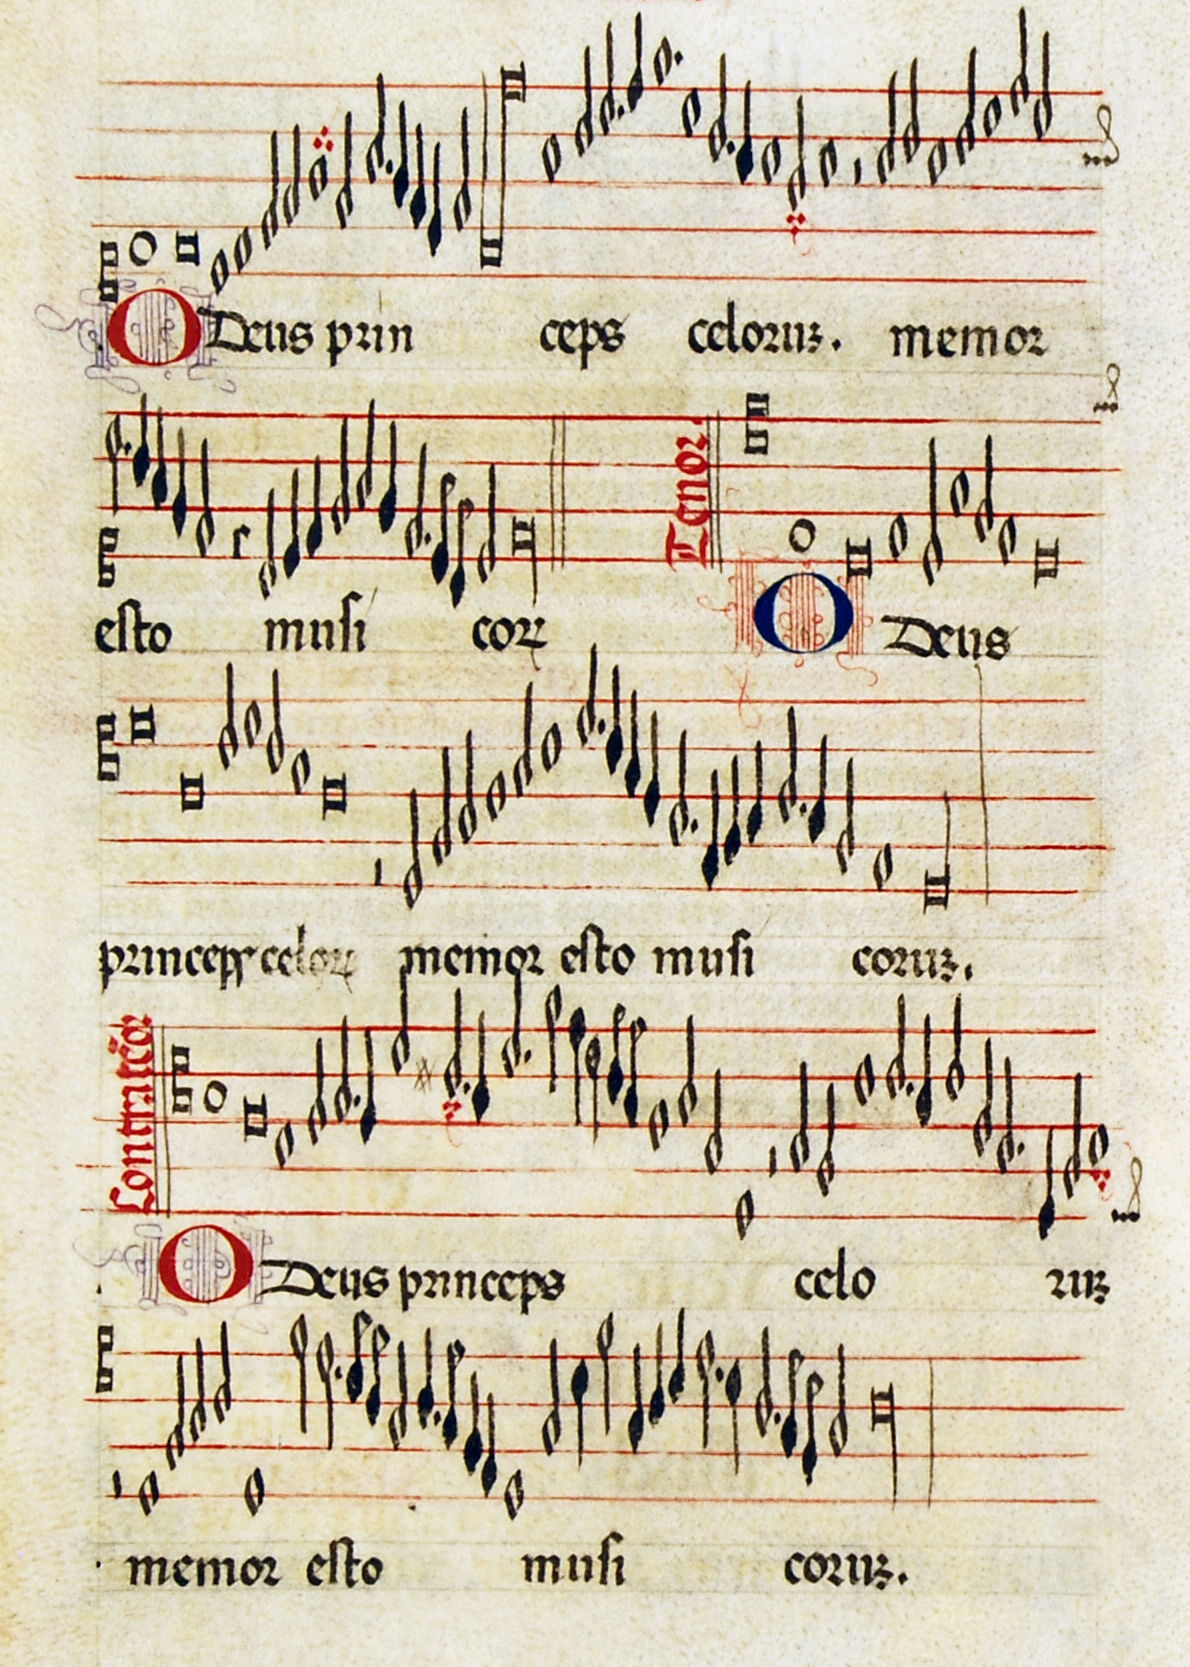 O Deus prin ceps celoruꝫ. memor
Tenor.
esto musi coꝝ O Deus
princeps celoꝝ memor esto musi coruꝫ.
Contratenor
O Deus princeps celo ruꝫ
memor esto musi coruꝫ.